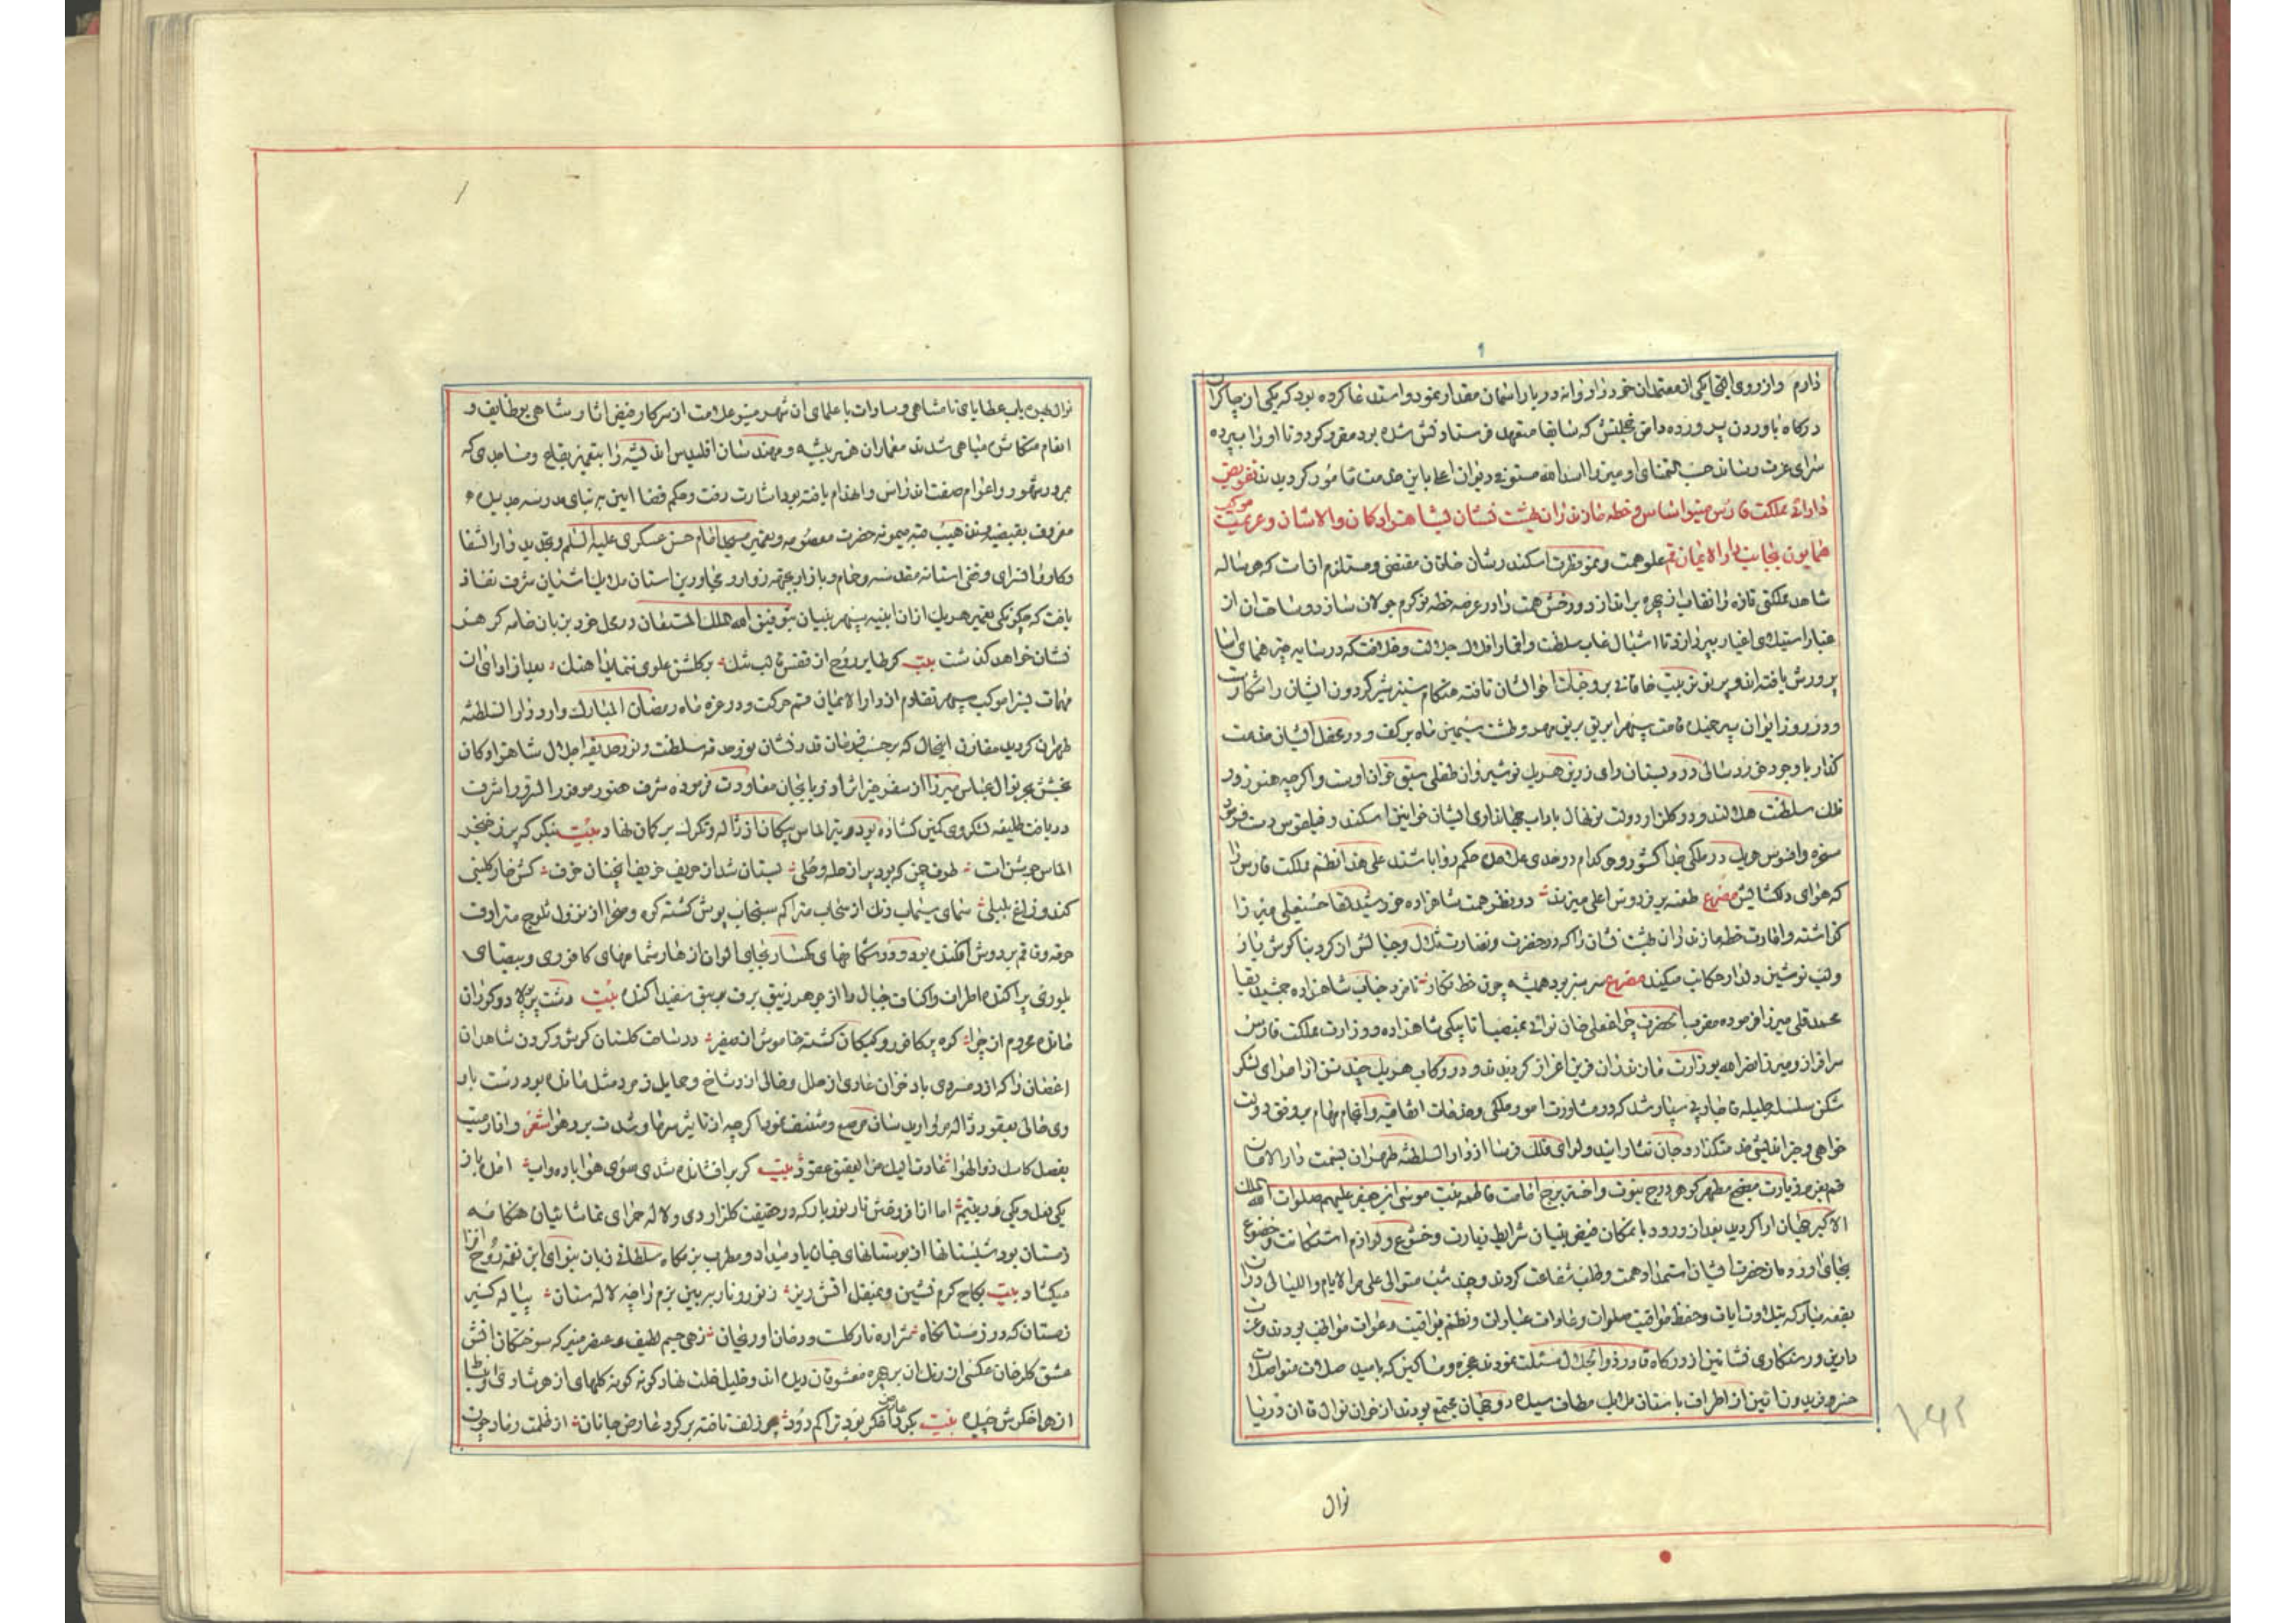 دارم و از روی التجا یکی از معتمدان خود را روانه دربار آسمان مقدار نموده و استدعا کرده بود که یکی از چاکران
درکاه باوردن پرورده دامن که سابقا متعهد فرستادنش شده بود مقرر کردد تا او را بپرده
سرای عزت رساند حسب التمنای او میرزا اسدالله مستوفی دیوان اعلی باین خدمت مامور کردیدند تفویض
دارائی مملکت فارس مینو اساس و خطه مازندران بهشت نشان بشاهزادکان والاشان و عزیمت موکب
همایون بجانب دارالایمان قم علو همت و سمو فطرت اسکندر شان خاقان مقتضی و مستلزم آنست که هر ساله
شاهد مملکتی تازه را نقاب از چهره براندازد و رخش همت را در عرصه خطه نو کرم جولان سازد و ساحت آن از
غبار استیلای اغیار بپردازد تا اشبال غاب سلطنت و اقمار افلاک جلالت و خلافت که در سایه چتر همای آسا
پرورش یافته اند و پرتو تربیت خاقانی بر وجنات احوالشان تافته هنکام ستیز شیر کردون ایشان را شکارست
و در روز ایوان پیر خمیده قامت سپهر ابریق بریق مهر و طشت سیمین ماه بر کف و در محفل ایشان خدمت
کذار با وجود خردسالی در دبستان رای زرین هر یک نوشیروان طفلی سبق خوان اوست و اکرچه هنوز در
فلک سلطنت هلالند و در کلزار دولت نونهال باداب جهانداری ایشان خواتین اسکندر و فیلقوس دست فرسود
سخره و افسوس هر یک در ملکی جدا کشور و هر کدام در حدی علاحده حکم روا باشند علی هذا نظم مملکت فارس را
که هوای دلکشایش مصرع طعنه بر فردوس اعلی میزند در نظر همت شاهزاده خورشید لقا حسینعلی میرزا
کذاشته و امارت خطه مازندران بهشت نشان را که در خضرت و نضارت تلال و جبالش از کرد بناکوش یار
و لب نوشین دلدار حکایت میکند مصرع سرسبز بود همیشه چون خط نکار نامزد جناب شاهزاده جمشید بقا
محمدقلی میرزا فرموده مقرب الحضرت چراغعلی خان نوائی بمنصب اتابیکی شاهزاده و وزارت مملکت فارس
سرافراز و میرزا نصرالله بوزارت مازندران قرین اعزاز کردیدند و در رکاب هر یک چند تن از امرای لشکر
شکن سلسله جلیله قاجاریه سپار شد که در مشاورت امور ملکی و خدمات اتفاقیه و انجام مهام بر وفق دولت
خواهی و خیراندیشی خدمتکذار و جان نثار آیند و لوای فلک فرسا از دارالسلطنه طهران بسمت دارالامان
قم بعزم زیارت مضجع مطهر کوهر درج نبوت و اختر برج امامت فاطمه بنت موسی ابن جعفر علیهم صلوات الله الملک
الاکبر جهان ارا کردید بعد از ورود بآنمکان فیض بنیان شرایط زیارت و خشوع و لوازم استکانت و خضوع
بجای آورد و از حضرت ایشان استمداد همت و طلب شفاعت کردند و چند شب متوالی علی مر الایام و اللیالی دران
بقعه مبارکه بتلاوت آیات و حفظ مواقیت صلوات و عادات عبادات و نظم مواقیت دعوات مواظب بودند و عزت
دارین و رستکاری نشاتین از درکاه قادر ذوالجلال مسئلت نمودند عجزه و مساکین که بامید صلات متواصلات
خسرو فریدون آئین از اطراف باستان ملایک مطاف سیده دو جهان مجتمع بودند از خوان نوال قاآن دریا
نوال
نوال بهره یاب عطایای نامتناهی و سادات با علمای آن شهر مینو علامت از سرکار فیض آثار شاهی بوظایف و
انعام متکاثر مباهی شدند معماران هنر پیشه و مهندسان اقلیدس اندیشه را بتعمیر بقاع و مساجدی که
بمرور شهور و اعوام صفت اندراس و انهدام یافته بود اشارت رفت و حکم قضا آیین بر بنای مدرسه جدیده
معروف بفیضیه و تذهیب قبه میمونه حضرت معصومه و تعمیر مسجد امام حسن عسکری علیه السلم و تجدید دارالشفا
و کاروانسرای و صحن آستانه مقدسه و حمام و بازار بجهة زوار و مجاورین آستان ملایک آشیان شرف نفاذ
یافت که چکونکی تعمیر هر یک از آن ابنیه سپهر بنیان بتوفیق الله الملک المستعان در محل خود بزبان خامه کرهر
فشان خواهد کذشت بیت کر طایر روح از قفس قالب تنک بر کلشن علوی ننماید آهنک بعد از ادای آن
مهمات بسزا موکب سپهر تقادم از دارالایمان قم حرکت و در غره ماه رمضان المبارک وارد دارالسلطنه
طهران کردید مقارن اینحال که بر حسب فرمان قدر نشان نور حدقه سلطنت و نور حدیقه اجلال شاهزادکان
بخشش بحر نوال عباس میرزا از سفر خیر اثر آذربایجان معاودت فرموده شرف هنوز موفور السرور اشرف
در یافت طلیعه لشکر دی کمین کشاده بود و تیر الماس پیکان از ژاله و تکرک بر کمان نهاد بیت بنکر که پر ز خنجر
الماس جوشن است طرف چمن که بود پر از حله و حلی بستان شد از حریف خریف آنچنان خرف کش خار کلبنی
کند و زاغ بلبلی سمای سیماب رنک از سحاب متراکم سنجاب پوش کشته کوه و صحرا از نزول ثلوج مترادف
خرقه وی قاقم بر دوش افکنده بود و در شکافهای کهسار بجای الوان ازهار شمامهای کافوری و بیضهای
بلوری پراکنده اطراف و اکناف جبال را از جوهر زیبق برف سفید آکنده بیت دشت در دو کوران
مانده محروم از چرا کوه پر کافور و کبکان کشته خاموش از صفیر در ساحت کلستان کوش و کردن شاهدان
اغصان را که از دم سردی باد خزان عاری از حلل و خالی از رشاخ و حمایل زمرد مثل مانده بود دست باد
دی خالی بعقود ژاله مروارید سان مرصع و مشنف نمود اکرچه از تاثیر سرما و شدت برد هوا شعر و اناء میت
بفضل کاسک ذوالهوا عادت الیک من العقیق عقود بیت کر برافشانده شدی سوی هوا باده ناب آمدی باز
یکی لعل و یکی در یتیم اما از افروختن نار نوربار که در حقیقت کلزار دی و لاله حمرای تماشائیان هنکامه
زمستان بود شبستانها از بوستانهای جنان یاد میداد و مطرب بزمکاه سلطانی زبان بنوای این نغمه روح افزا
میکشاد بیت بکاخ کرم نشین و بمنقل آتش ریز ز نور و نار ببین بزم را چه لاله ستان پیاله کیر
زمستان که در زمستانکاه شراره نار کلست و دخان او ریحان زهی جسم لطیف و عنصر منیر که سوختکان آتش
عشق کلرخان عکس از آن بر چهره معشوقان دیده اند و خلیل خلت نهاد کونه کونه کلهای
از هر اخکرش چیده بیت بکرد آتش فکر بود تراکم دود چو زلف تافته بر کرد عارض جانان از ظلمت رماد چون
۱۶۲